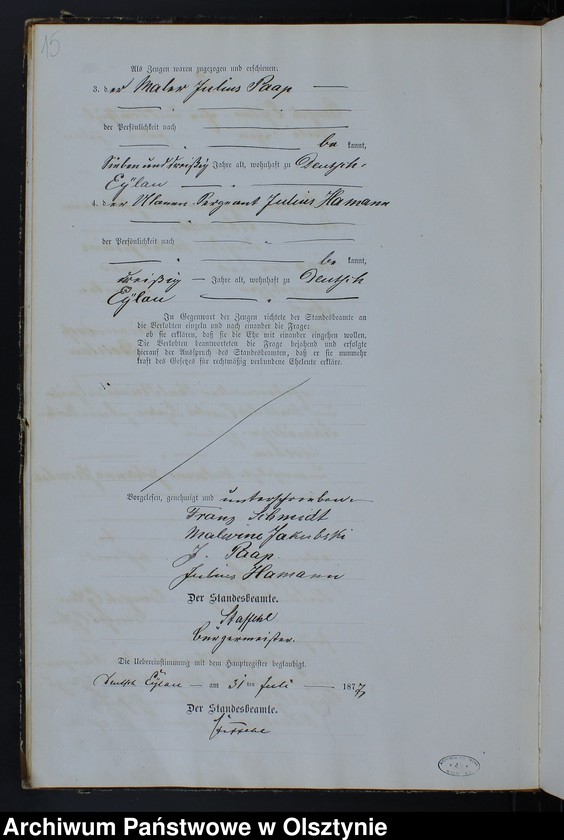 15
Als Zeugen waren zugezogen und erschienen:
3. der Maler Julius Paap
der Persönlichkeit nach
be kannt,
Sieben und dreißig Jahre alt, wohnhaft zu Deutsch-
Eylau
4. der Ulanen Sergeant Julius Hamann
der Persönlichkeit nach
be kannt,
dreißig Jahre alt, wohnhaft zu Deutsch
Eylau
In Gegenwart der Zeugen richtete der Standesbeamte an
die Verlobten einzeln und nach einander die Frage:
ob sie erklären, daß sie die Ehe mit einander eingehen wollen.
Die Verlobten beantworteten die Frage bejahend und erfolgte
hierauf der Ausspruch des Standesbeamten, daß er sie nunmehr
kraft des Gesetzes für rechtmäßig verbundene Eheleute erkläre.
Vorgelesen, genehmigt und unterschrieben.
Franz Schmidt
Malwine Jakubski
J. Paap.
Julius Hamann
Der Standesbeamte.
Bürgermeister.
Die Uebereinstimmung mit dem Hauptregister beglaubigt.
Deutsch Eylau am 31 ten Juli 1877
Der Standesbeamte.
Archiwum Państwowe w Olsztynie